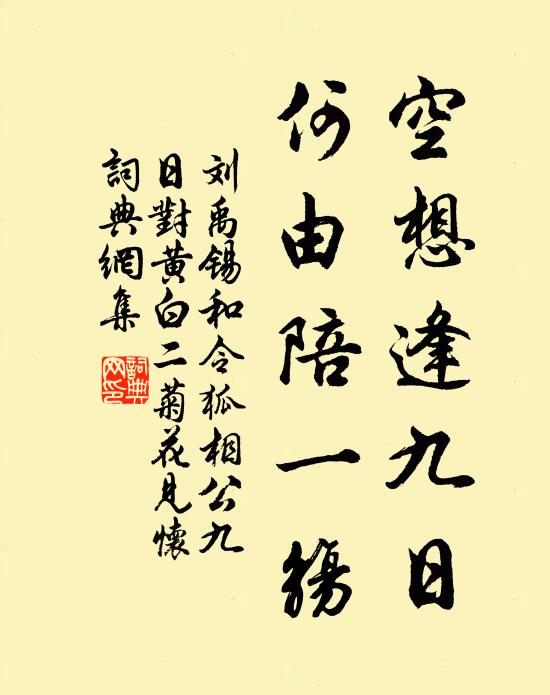 空想逢九日
何由陪一觞
刘禹锡和令狐相公九
日對黄白二菊花見懷
詞典網集
詞典
网印